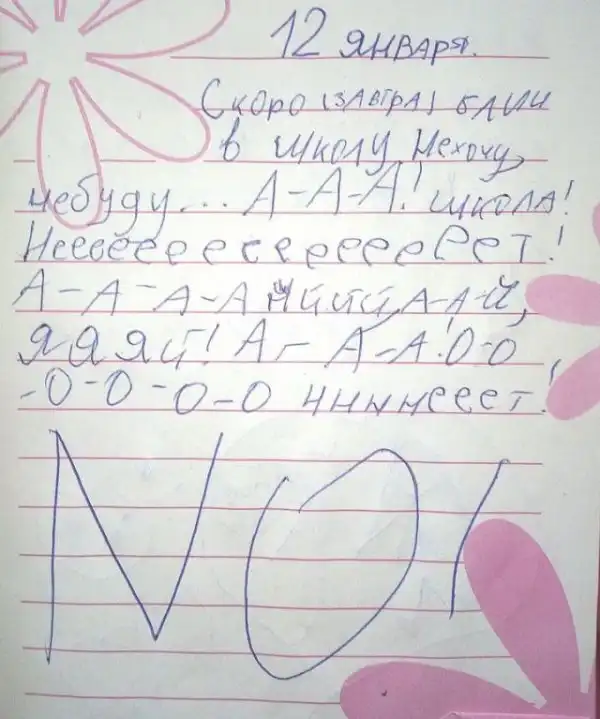 12 января.
Скоро (завтра) блин
в школу Нехочу,
небуду... А-А-А! школа!
Нееееееееееееееет!
А-А-А-А йййй, А-А-й,
Я Я Яй! А,- А-А! О-О
-О-О-О-О ннннееет!
NO!